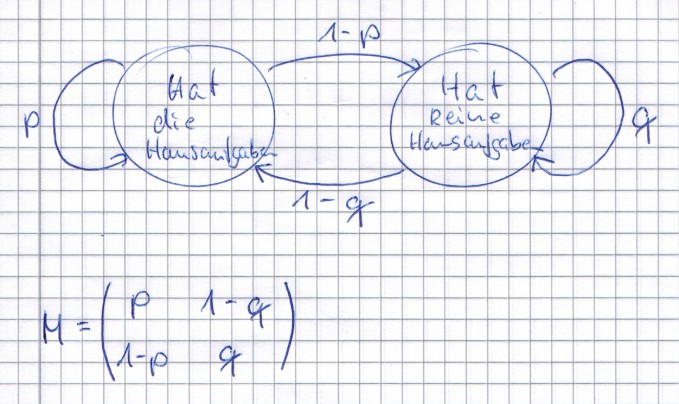 1-p
Hat
die
Hausaufgaben
Hat
keine
Hausaufgaben
p
q
1-q
M = ( p 1-q
1-p q )